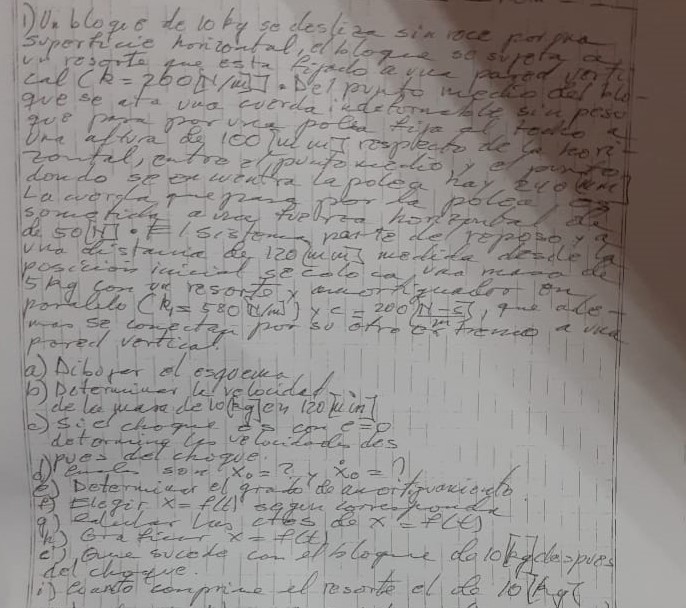 1) Un bloque de 10 kg se desliza sin roce por una
superficie horizontal, el bloque se sujeta a
un resorte que esta fijado a una pared verti
cal (k = 200 [N/m]). Del punto medio del blo-
que se ata una cuerda indeformable sin peso
que pasa por una polea fija al techo a
una altura de 100 [mm] respecto de la hori-
zontal, entre el punto medio y el punto
donde se encuentra la polea hay 240 [mm]
La cuerda que pasa por la polea, es
sometida a una fuerza horizontal de
de 50 [N]. El sistema parte de reposo y a
una distancia de 120 [mm] medida desde la
posición inicial se coloca una masa de
5 kg con un resorte y amortiguador en
paralelo (k1 = 580 [N/m] y c = 200 [N-s/m], que ade-
mas se conectan por su otro extremo a una
pared vertical.
a) Dibojar el esquema
b) Determinar la velocidad
de la masa de 10 [kg] en 120 [mm]
c) Si el choque es con e=0
determine las velocidades des
pues del choque.
d) Cuales son x0 = ? y ẋ0 = ?
e) Determinar el grado de amortiguamiento
f) Elegir x = f(t) segun corresponda
g) Calcular las ctes de x = f(t)
h) Graficar x = f(t)
i) Que sucede con el bloque de 10 [kg] despues
del choque.
j) Cuanto comprime el resorte el de 10 [kg]